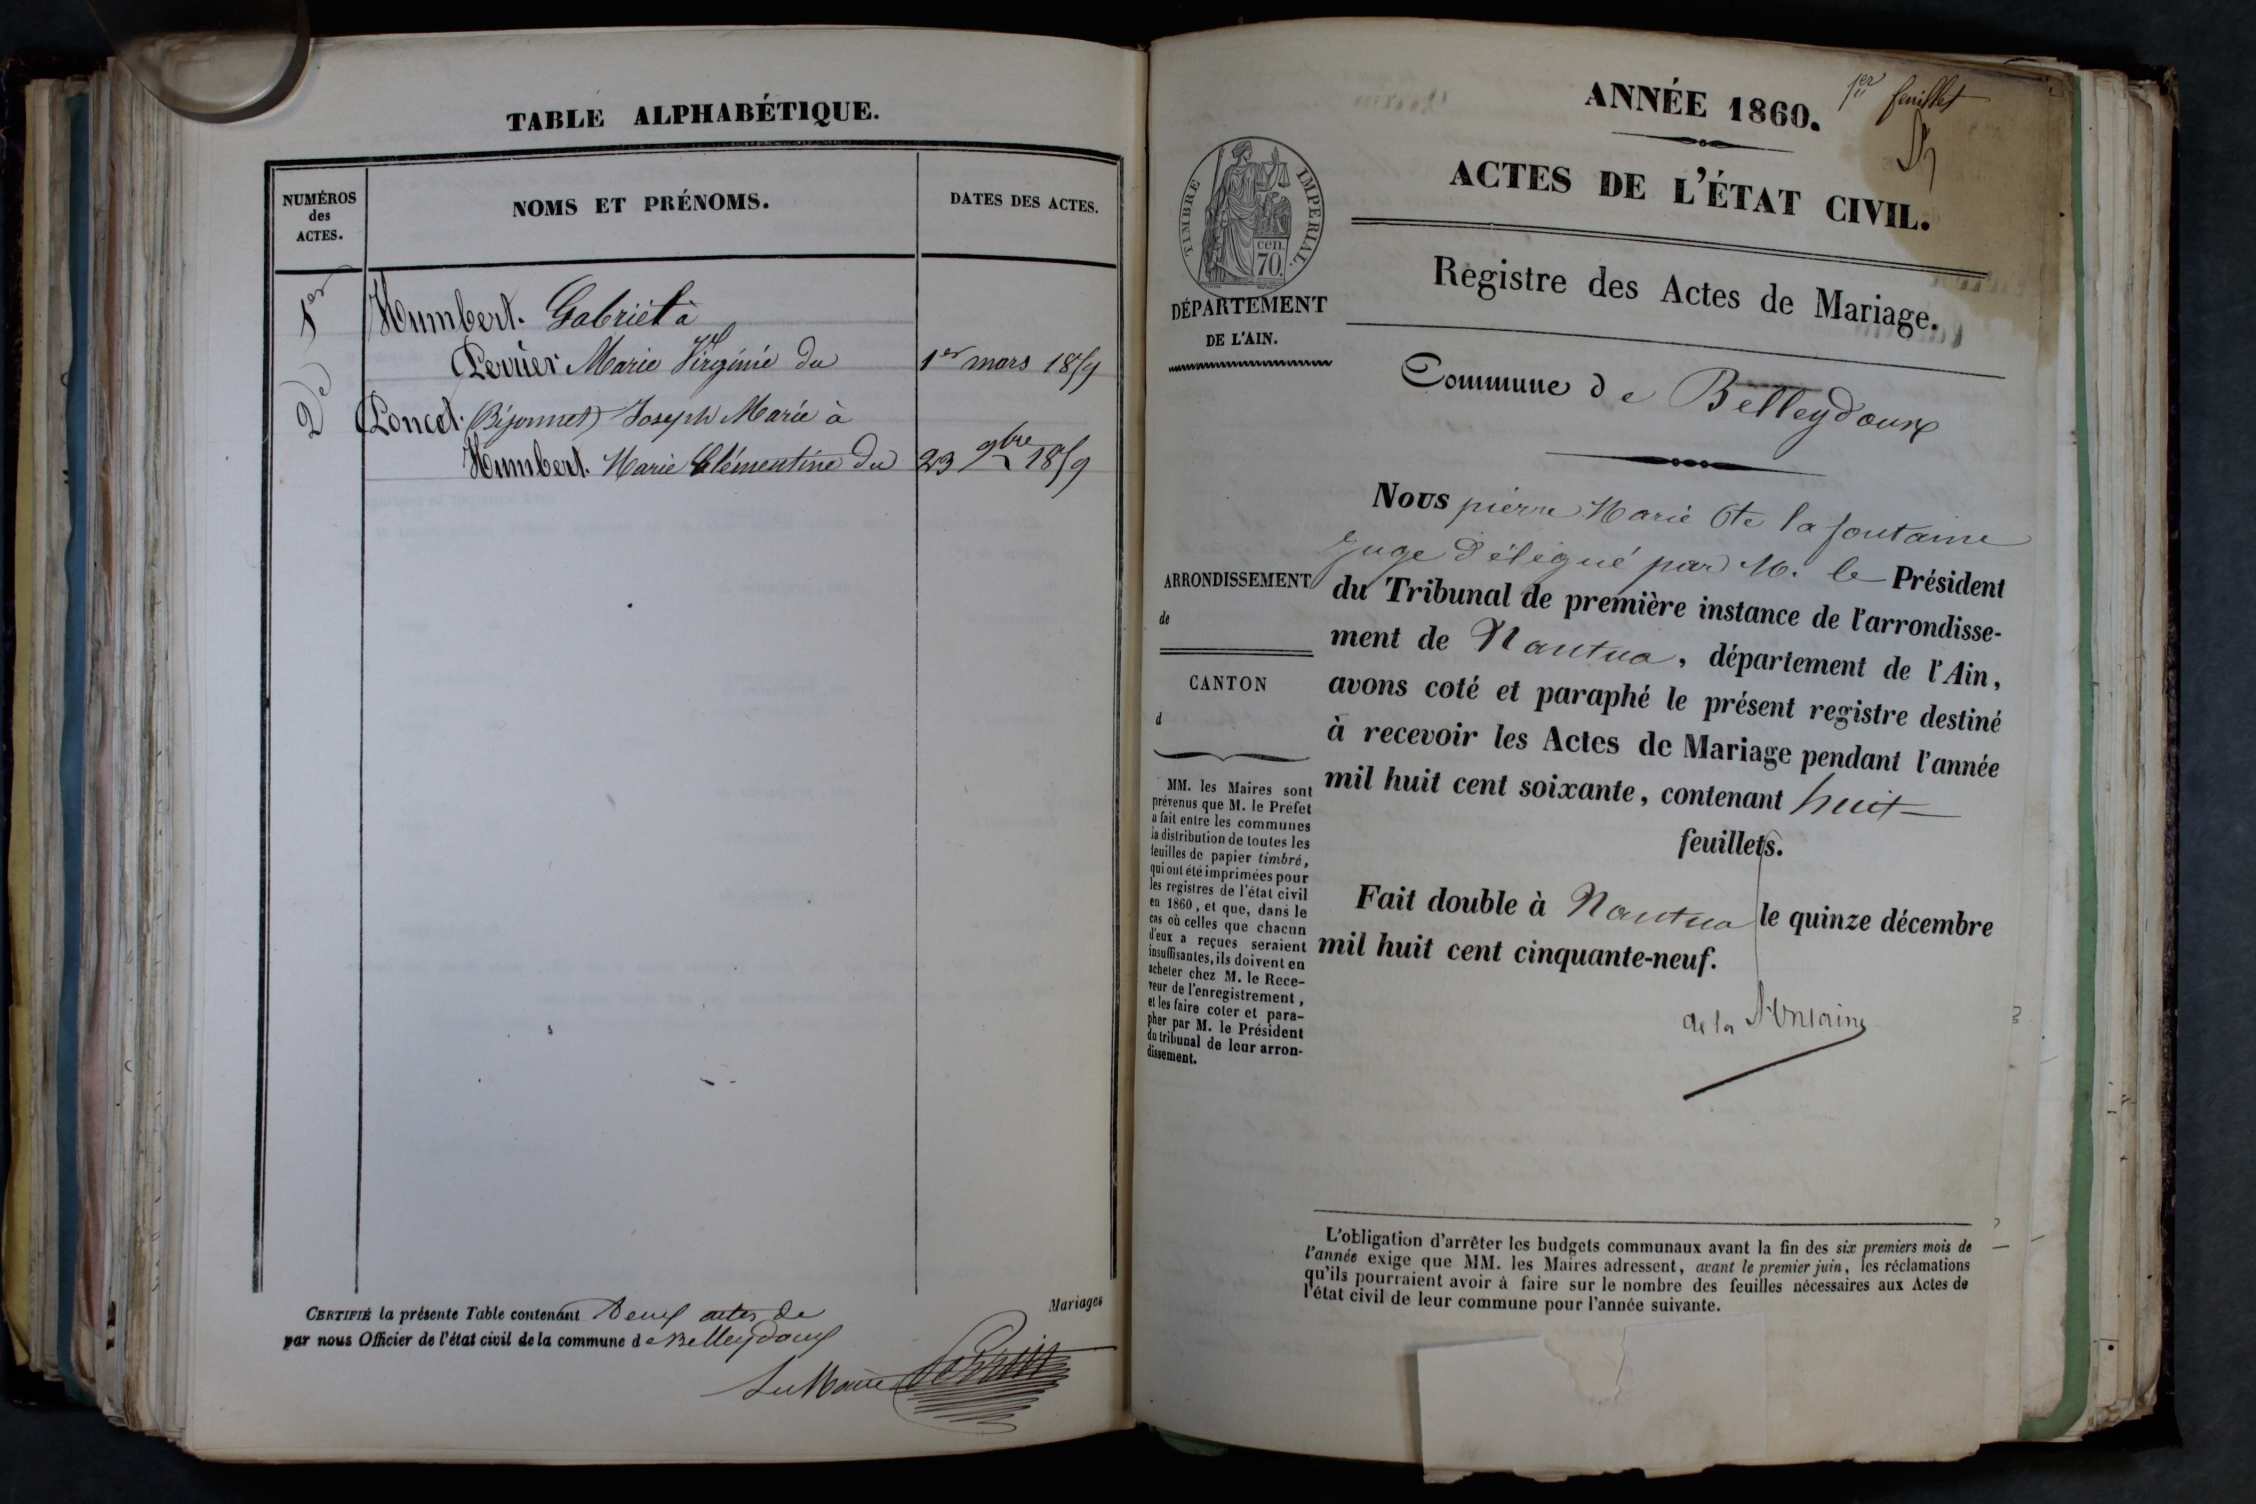 TABLE ALPHABÉTIQUE.
NUMÉROS
des
ACTES.
NOMS ET PRÉNOMS.
DATES DES ACTES.
1er
Humbert. Gabriel à
Perrier Marie Virginie du
1er mars 1859
2e
Poncet. (Bijonnet) Joseph Marie à
Humbert. Marie Clémentine du
23 9bre 1859
CERTIFIÉ la présente Table contenant Deux actes de
Mariages
par nous Officier de l'état civil de la commune de Belleydoux
Le Maire
1er feuillet
ANNÉE 1860.
ACTES DE L'ÉTAT CIVIL.
TIMBRE IMPERIAL.
cen.
70.
DÉPARTEMENT
DE L'AIN.
Registre des Actes de Mariage.
Commune de Belleydoux
ARRONDISSEMENT
de
CANTON
d
MM. les Maires sont
prévenus que M. le Préfet
a fait entre les communes
la distribution de toutes les
feuilles de papier timbré,
qui ont été imprimées pour
les registres de l'état civil
en 1860, et que, dans le
cas où celles que chacun
d'eux a reçues seraient
insuffisantes, ils doivent en
acheter chez M. le Rece-
veur de l'enregistrement,
et les faire coter et para-
pher par M. le Président
du tribunal de leur arron-
dissement.
Nous pierre Marie Cte la fontaine
Juge délégué par M. le Président
du Tribunal de première instance de l'arrondisse-
ment de Nantua, département de l'Ain,
avons coté et paraphé le présent registre destiné
à recevoir les Actes de Mariage pendant l'année
mil huit cent soixante, contenant huit
feuillets.
Fait double à Nantua le quinze décembre
mil huit cent cinquante-neuf.
de la Fontaine
L'obligation d'arrêter les budgets communaux avant la fin des six premiers mois de
l'année exige que MM. les Maires adressent, avant le premier juin, les réclamations
qu'ils pourraient avoir à faire sur le nombre des feuilles nécessaires aux Actes de
l'état civil de leur commune pour l'année suivante.